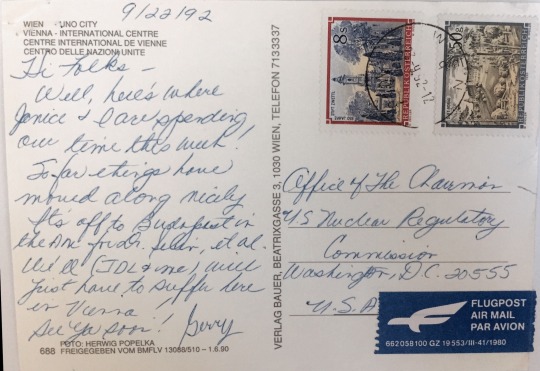 9/22/92
WIEN UNO CITY
VIENNA - INTERNATIONAL CENTRE
CENTRE INTERNATIONAL DE VIENNE
CENTRO DELLE NAZIONI UNITE
Hi Folks
Well, here's where
Janice & I are spending
our time this week!
So far things have
moved along nicely
It's off to Budapest in
the AM for Dr. et al.
We'll (JDL & me) will
just have to suffer here
in Vienna
See Ya Soon! Gerry
FOTO: HERWIG POPELKA
688 FREIGEGEBEN VOM BMFLV 13088/510 - 1.6.90
VERLAG BAUER, BEATRIXGASSE 3, 1030 WIEN, TELEFON 7133337
8 S
REPUBLIK ÖSTERREICH
50
REPUBLIK ÖSTERREICH
Office of The Chairman
US Nuclear Regulatory
Commission
Washington, D.C. 20555
U.S.A
FLUGPOST
AIR MAIL
PAR AVION
662 058 100 GZ 19 553/III-41/1980